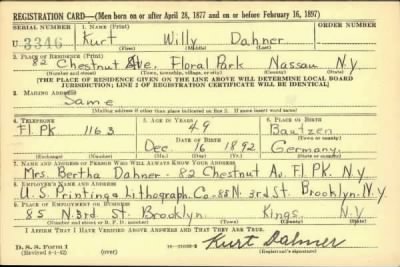 REGISTRATION CARD—(Men born on or after April 28, 1877 and on or before February 16, 1897)
SERIAL NUMBER 1. NAME (Print) ORDER NUMBER
U 3346 Kurt Willy Dahmer
(First) (Middle) (Last)
2. PLACE OF RESIDENCE (Print)
82 Chestnut Ave. Floral Park Nassau N.Y.
(Number and street) (Town, township, village, or city) (County) (State)
[THE PLACE OF RESIDENCE GIVEN ON THE LINE ABOVE WILL DETERMINE LOCAL BOARD
JURISDICTION; LINE 2 OF REGISTRATION CERTIFICATE WILL BE IDENTICAL]
3. MAILING ADDRESS
Same
[Mailing address if other than place indicated on line 2. If same insert word same]
4. TELEPHONE 5. AGE IN YEARS 6. PLACE OF BIRTH
Fl. Pk. 1163 49 Bautzen
DATE OF BIRTH (Town or county)
Dec. 16 1892 Germany.
(Exchange) (Number) (Mo.) (Day) (Yr.) (State or country)
7. NAME AND ADDRESS OF PERSON WHO WILL ALWAYS KNOW YOUR ADDRESS
Mrs. Bertha Dahmer - 82 Chestnut Av. Fl. Pk. N.Y.
8. EMPLOYER'S NAME AND ADDRESS
U.S. Printing & Lithograph Co. 85 N. 3rd St. Brooklyn. N.Y.
9. PLACE OF EMPLOYMENT OR BUSINESS
85 N. 3rd St. Brooklyn. Kings. N.Y.
(Number and street or R. F. D. number) (Town) (County) (State)
I AFFIRM THAT I HAVE VERIFIED ABOVE ANSWERS AND THAT THEY ARE TRUE.
D. S. S. Form 1
(Revised 4-1-42) (over) Kurt Dahmer
(Registrant's signature)